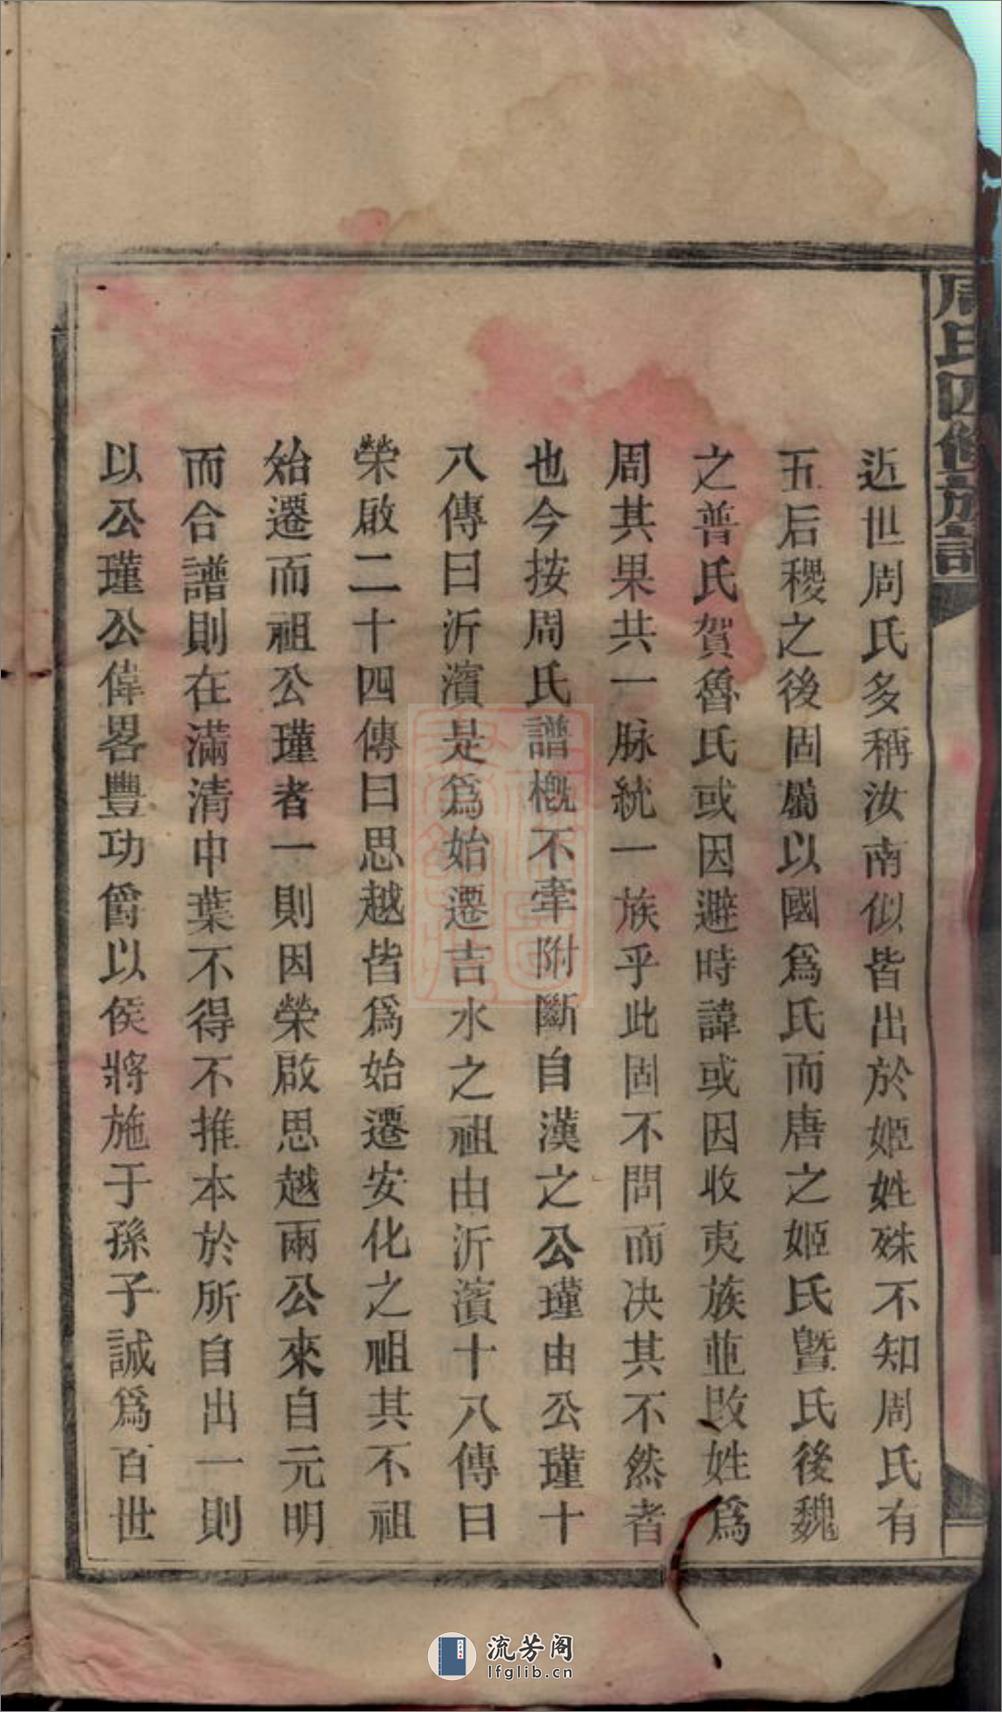 周氏四修族譜
近世周氏多稱汝南似皆出於姬姓殊不知周氏有
五后稷之後固屬以國爲氏而唐之姬氏暨氏後魏
之普氏賀魯氏或因避時諱或因收夷族並改姓爲
周其果共一脉統一族乎此固不問而决其不然者
也今按周氏譜槪不牽附斷自漢之公瑾由公瑾十
八傳曰沂濱是爲始遷吉水之祖由沂濱十八傳曰
榮啟二十四傳曰思越皆爲始遷安化之祖其不祖
始遷而祖公瑾者一則因榮啟思越兩公來自元明
而合譜則在滿清中葉不得不推本於所自出一則
以公瑾公偉畧豐功爵以侯將施于孫子誠爲百世
流芳阁
lfglib.cn